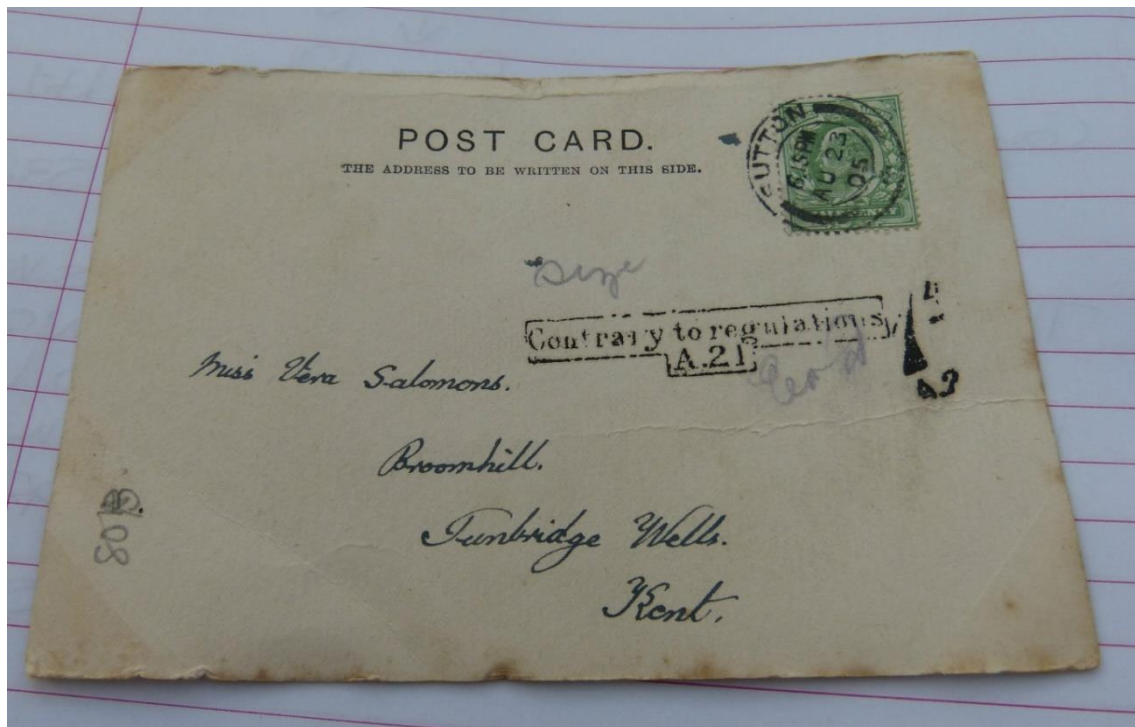 POST CARD.
THE ADDRESS TO BE WRITTEN ON THIS SIDE.
SUTTON
6.15PM
AU 23
05
Size
Contrary to regulations
A.21
Miss Vera Salomons.
Broomhill.
Tunbridge Wells.
Kent.